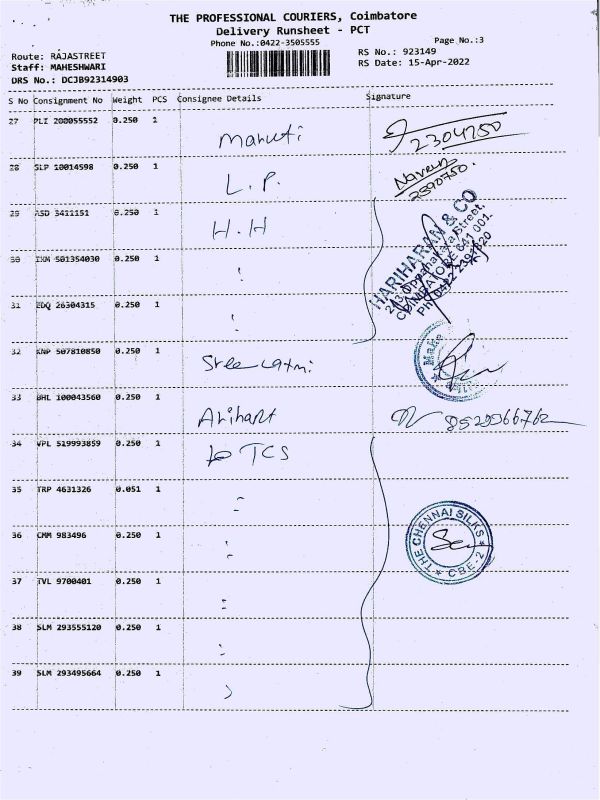 THE PROFESSIONAL COURIERS, Coimbatore
Delivery Runsheet - PCT
Phone No.:0422-3505555
Page No.:3
Route: RAJASTREET
RS No.: 923149
Staff: MAHESHWARI
RS Date: 15-Apr-2022
DRS No.: DCJB92314903
S No Consignment No Weight PCS Consignee Details Signature
27 PLI 200055552 0.250 1 Maruti 2304750
28 SLP 10014598 0.250 1 L.P. Naveen 2590750.
29 ASD 3411151 0.250 1 H.H
HARIHARAN & CO
COIMBATORE 641 001.
30 IXM 501354030 0.250 1
31 EDQ 26304315 0.250 1
32 KNP 507810850 0.250 1
33 BHL 100043560 0.250 1 Arihant
34 VPL 519993859 0.250 1 TCS
35 TRP 4631326 0.051 1
36 CMM 983496 0.250 1
THE CHENNAI SILKS
CBE-2
37 TVL 9700401 0.250 1
38 SLM 293555120 0.250 1
39 SLM 293495664 0.250 1